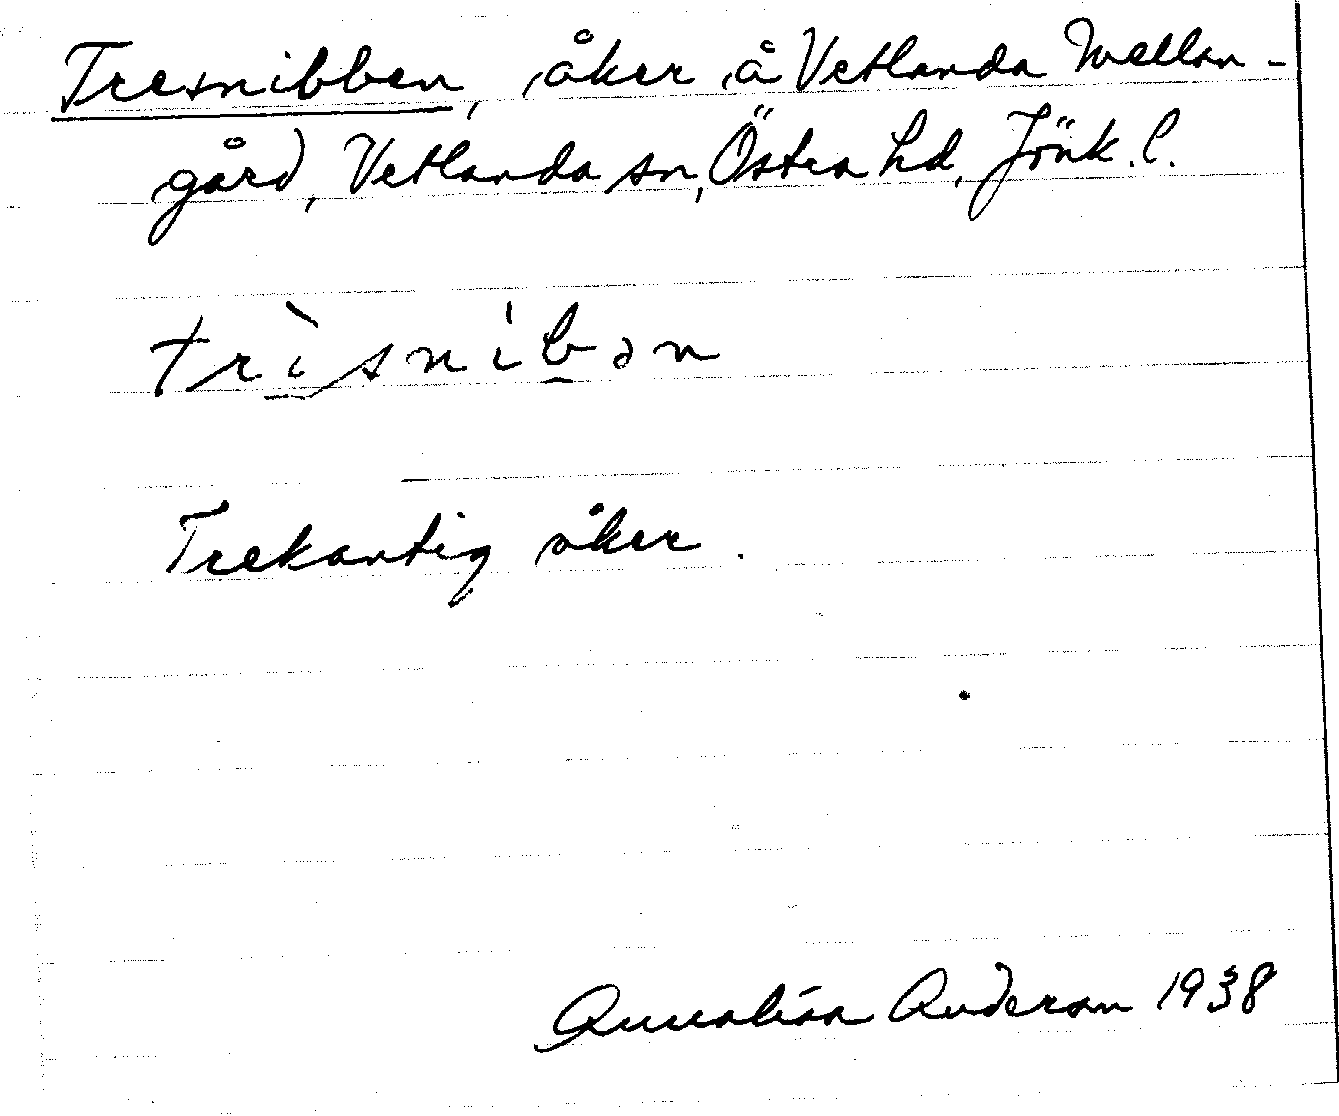 Tresnibben, åker å Vetlanda Mellan-
gård, Vetlanda sn, Östra hd, Jönk. l.
trìsnibən
Trekantig åker.
Annalisa Anderson 1938